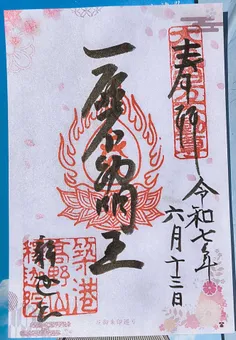 奉拝
令和七年
六月十三日
一願不動明王
釈迦院
築港
高野山
釈迦院